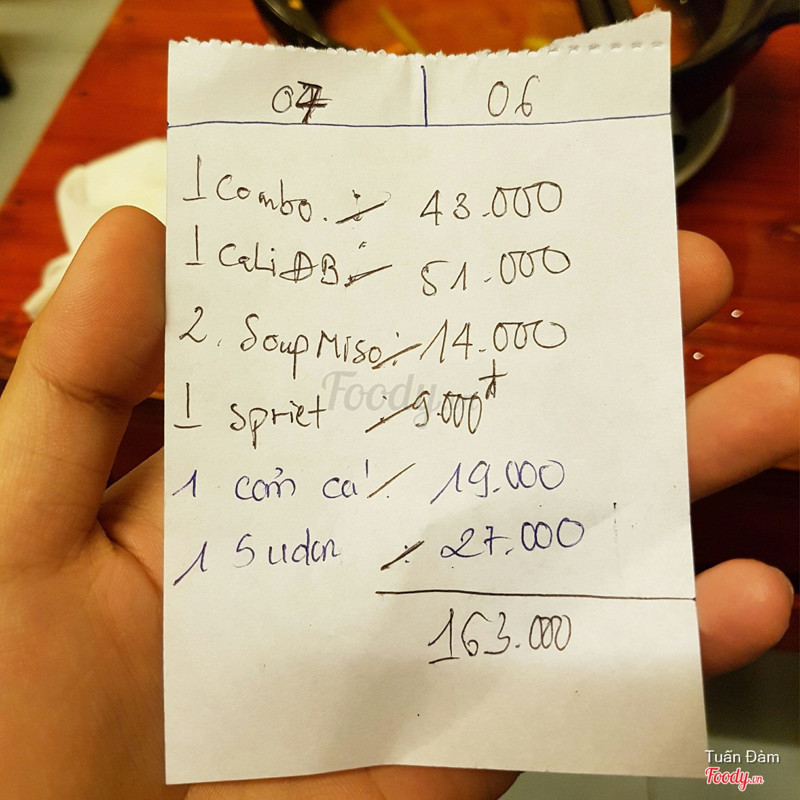 07 06
1 Combo. : 43.000
1 Cali ĐB : 51.000
2. Soup Miso : 14.000
1 Spriet : 9.000
1 cơm cá : 19.000
1 Sudon : 27.000
163.000
Foody
Tuấn Đàm
Foody.vn